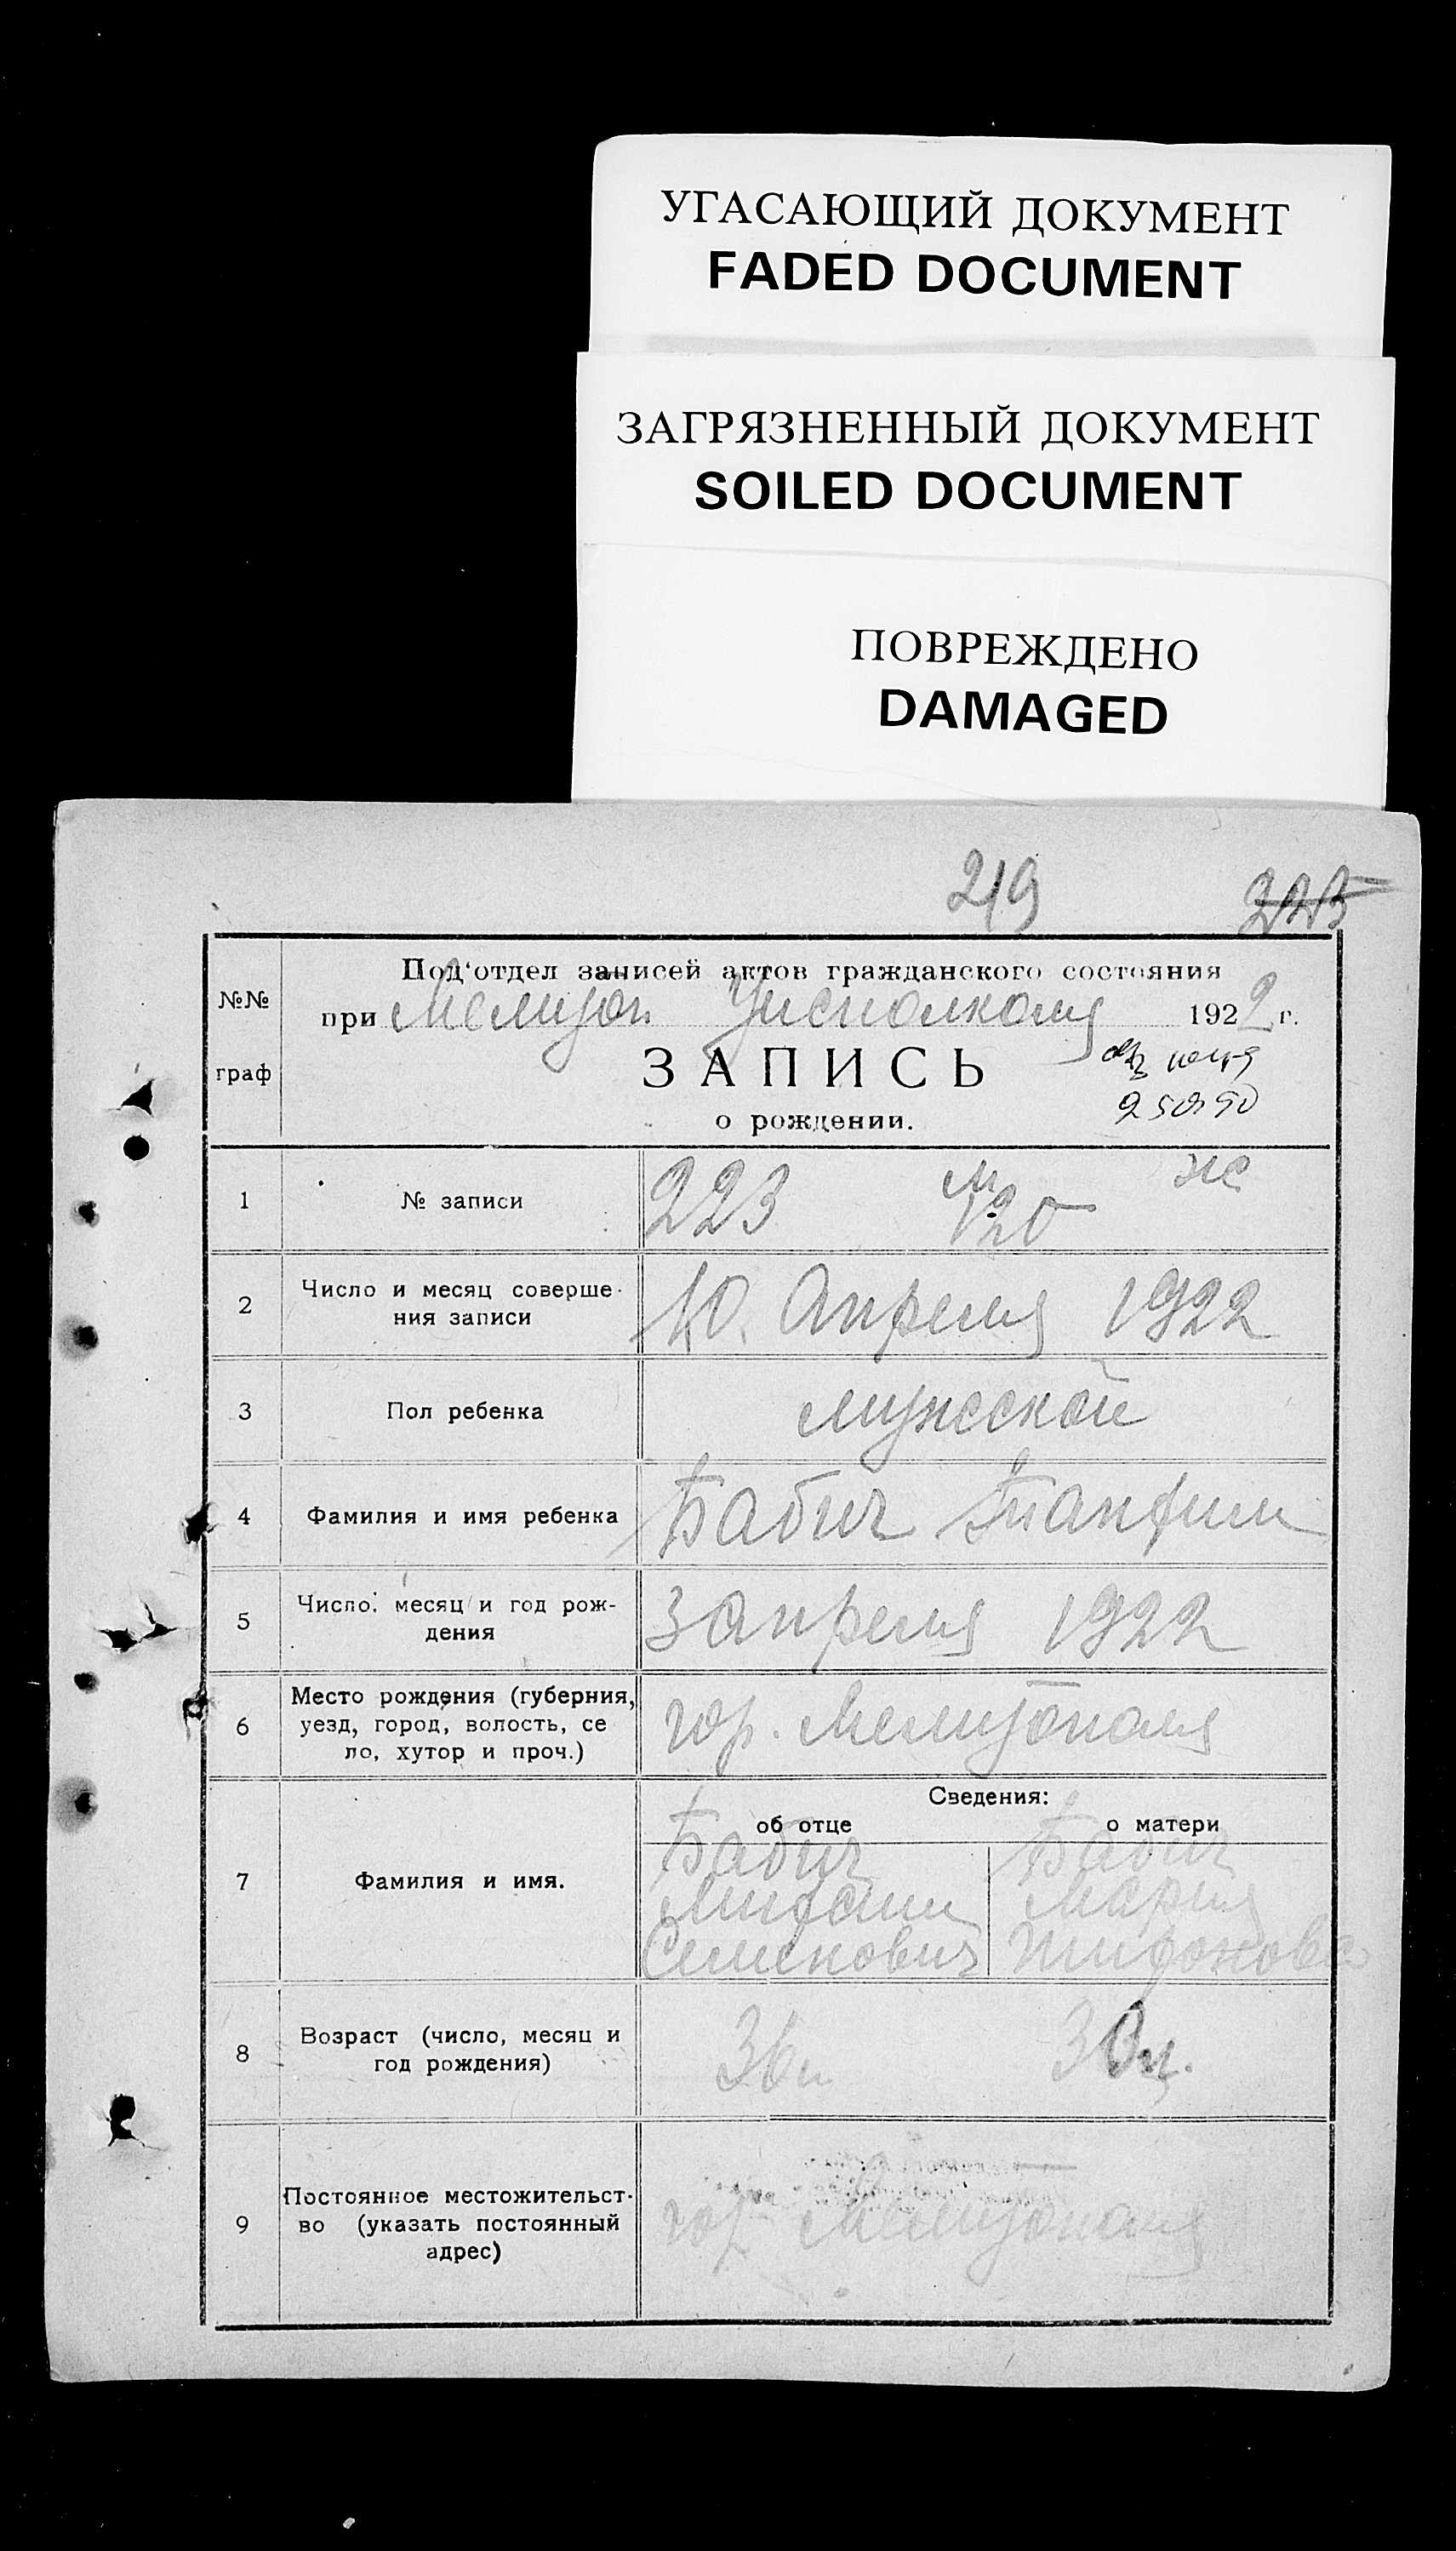 УГАСАЮЩИЙ ДОКУМЕНТ
FADED DOCUMENT
ЗАГРЯЗНЕННЫЙ ДОКУМЕНТ
SOILED DOCUMENT
ПОВРЕЖДЕНО
DAMAGED
219 225
№№ граф
Под'отдел записей актов гражданского состояния
при Мелитоп. Уисполкома 1922 г.
ЗАПИСЬ
о рождении.
25 90
1 № записи 223 м 120 ж
2 Число и месяц соверше-
ния записи 10 Апреля 1922
3 Пол ребенка мужской
4 Фамилия и имя ребенка Бабич
5 Число, месяц и год рож-
дения 3 апреля 1922
6 Место рождения (губерния,
уезд, город, волость, се
ло, хутор и проч.) гор. Мелитополя
Сведения:
об отце о матери
7 Фамилия и имя. Бабич Бабич
Мария
Семенович
8 Возраст (число, месяц и
год рождения) 36 л 30 л.
9 Постоянное местожительст-
во (указать постоянный
адрес) гор Мелитополя